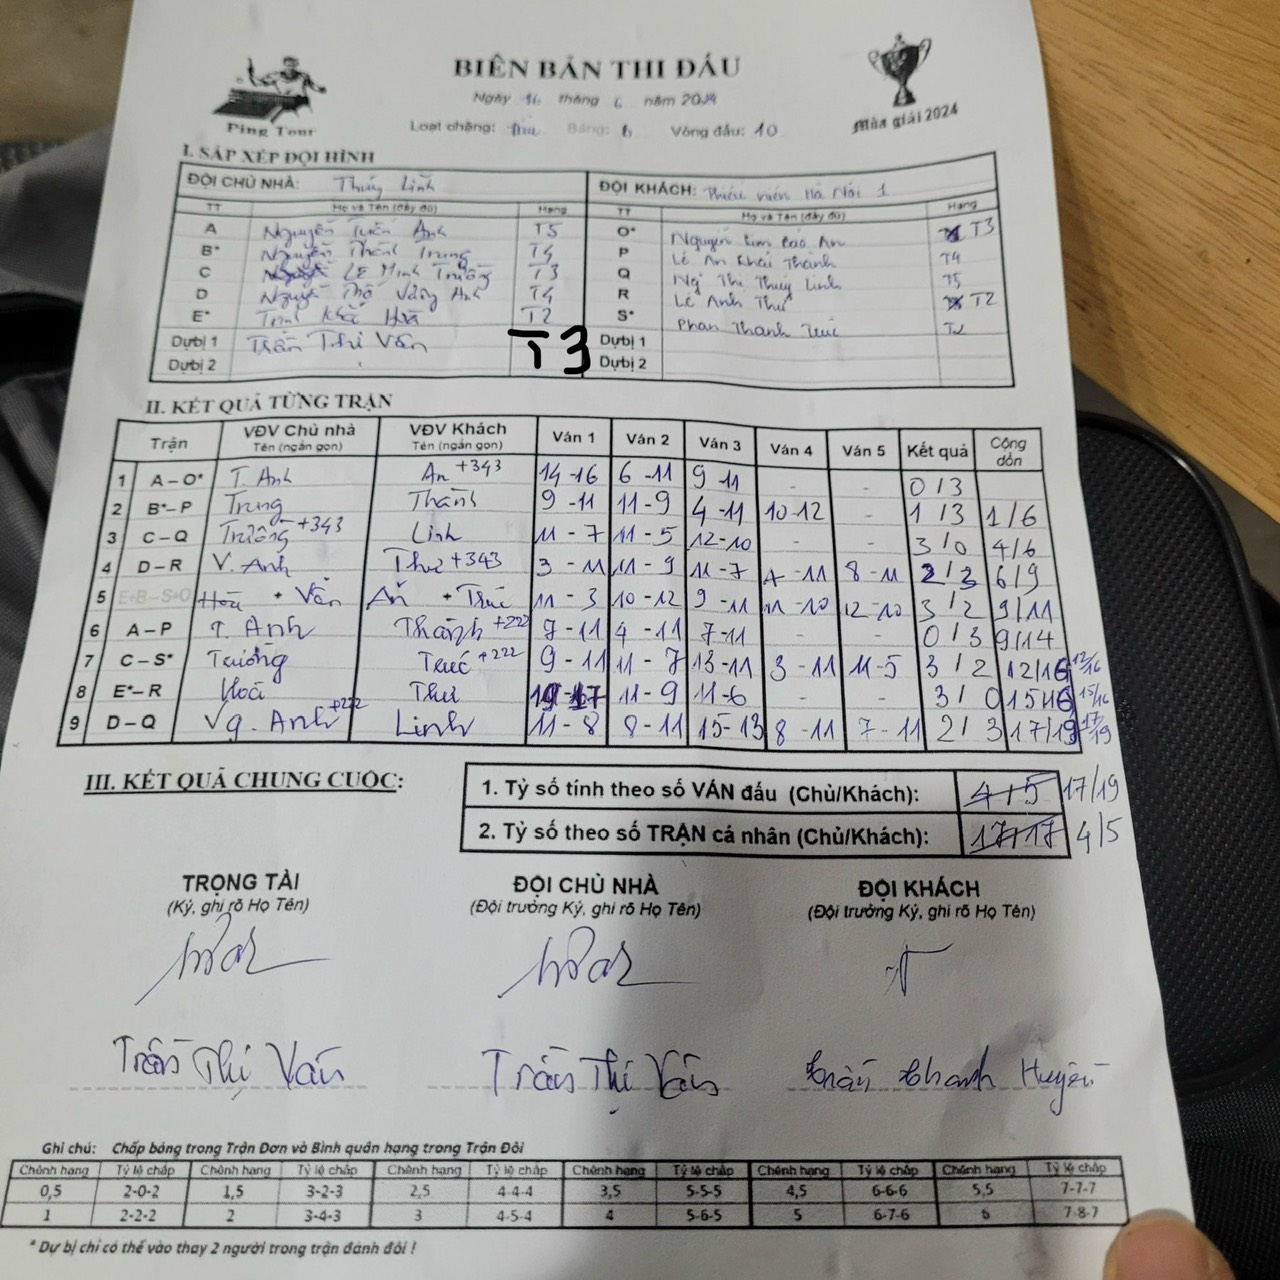 BIÊN BẢN THI ĐẤU
Ping Tour
Ngày 16 tháng 6 năm 2024
Mùa giải 2024
Loạt chặng: Bảng: 6 Vòng đấu: 10
I. SẮP XẾP ĐỘI HÌNH
ĐỘI CHỦ NHÀ: Thùy Linh ĐỘI KHÁCH: Hà Nội 1
TT Họ và Tên (đầy đủ) Hạng TT Họ và Tên (đầy đủ) Hạng
A Nguyễn Tuấn Anh T5 O* Nguyễn Kim Bảo An T3
B* Nguyễn Thành Trung T4 P Lê An Khải Thành T4
C Nguyễn Lê Minh Trường T3 Q Ng Thị Thùy Linh T5
D Nguyễn Thổ Vàng Anh T4 R Lê Anh Thư T2
E* Trịnh Khắc Hoà T2 S* Phan Thanh Trúc T2
Dự bị 1 Trần Thị Vân T3 Dự bị 1
Dự bị 2 Dự bị 2
II. KẾT QUẢ TỪNG TRẬN
Trận VĐV Chủ nhà Tên (ngắn gọn) VĐV Khách Tên (ngắn gọn) Ván 1 Ván 2 Ván 3 Ván 4 Ván 5 Kết quả Cộng dồn
1 A – O* T. Anh An +343 14 - 16 6 - 11 9 - 11 - - 0 / 3
2 B* – P Trung Thành 9 - 11 11 - 9 4 - 11 10 - 12 - 1 / 3 1 / 6
3 C – Q Trường +343 Linh 11 - 7 11 - 5 12 - 10 - - 3 / 0 4/6
4 D – R V. Anh Thư +343 3 - 11 11 - 9 11 - 7 7 - 11 8 - 11 2 / 3 6/9
5 E+B – S+O Hoà + Vân An + Trúc 11 - 3 10 - 12 9 - 11 11 - 10 12 - 10 3 / 2 9/11
6 A – P T. Anh Thành +222 7 - 11 4 - 11 7 - 11 - - 0 / 3 9/14
7 C – S* Trường Trúc +222 9 - 11 11 - 7 13 - 11 3 - 11 11 - 5 3 / 2 12/16 12/16
8 E* – R Hoà Thư 19 - 17 11 - 9 11 - 6 - - 3 / 0 15/16 15/16
9 D – Q Vg. Anh +222 Linh 11 - 8 8 - 11 15 - 13 8 - 11 7 - 11 2 / 3 17/19 17/19
III. KẾT QUẢ CHUNG CUỘC:
1. Tỷ số tính theo số VÁN đấu (Chủ/Khách): 4 / 5 17/19
2. Tỷ số theo số TRẬN cá nhân (Chủ/Khách): 17/17 4/5
TRỌNG TÀI ĐỘI CHỦ NHÀ ĐỘI KHÁCH
(Ký, ghi rõ Họ Tên) (Đội trưởng Ký, ghi rõ Họ Tên) (Đội trưởng Ký, ghi rõ Họ Tên)
Trần Thị Vân Trần Thị Vân Trần Thanh Huyền
Ghi chú: Chấp bóng trong Trận Đơn và Bình quân hạng trong Trận Đôi
Chênh hạng Tỷ lệ chấp Chênh hạng Tỷ lệ chấp Chênh hạng Tỷ lệ chấp Chênh hạng Tỷ lệ chấp Chênh hạng Tỷ lệ chấp Chênh hạng Tỷ lệ chấp
0,5 2-0-2 1,5 3-2-3 2,5 4-4-4 3,5 5-5-5 4,5 6-6-6 5,5 7-7-7
1 2-2-2 2 3-4-3 3 4-5-4 4 5-6-5 5 6-7-6 6 7-8-7
* Dự bị chỉ có thể vào thay 2 người trong trận đánh đôi !